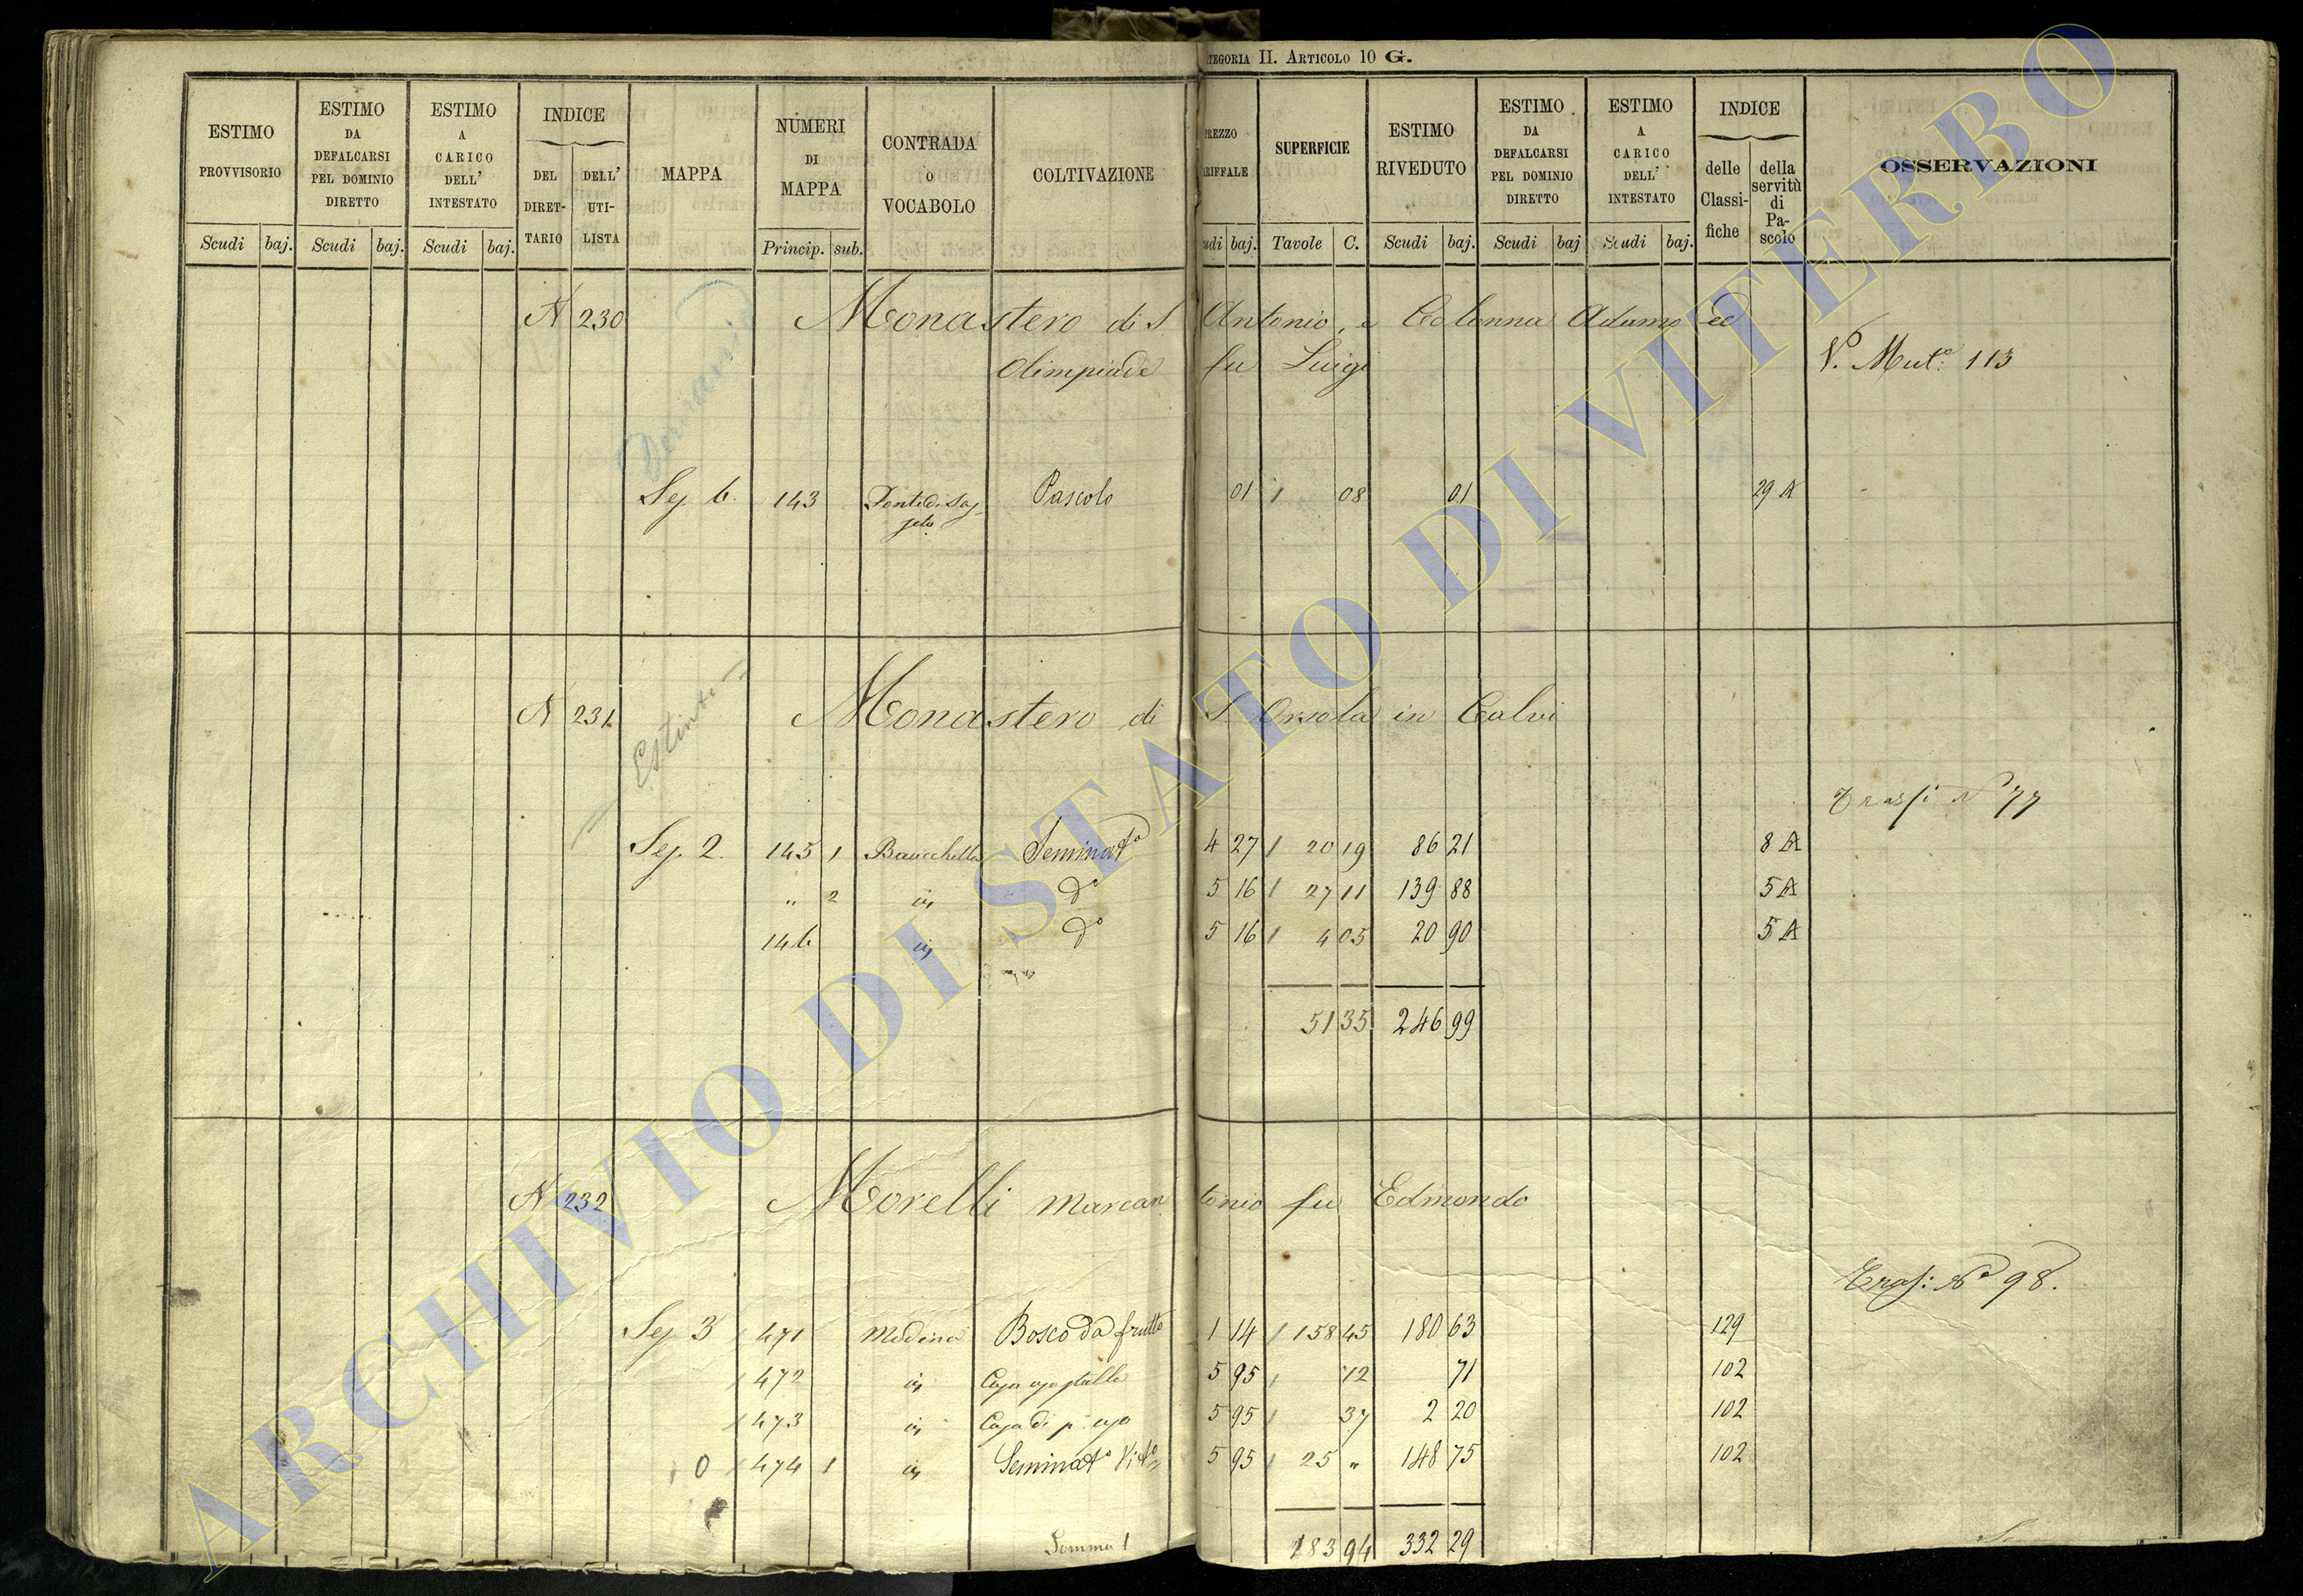 CATEGORIA II. ARTICOLO 10 G.
ESTIMO PROVVISORIO Scudi baj.
ESTIMO DA DEFALCARSI PEL DOMINIO DIRETTO Scudi baj.
ESTIMO A CARICO DELL' INTESTATO Scudi baj.
INDICE DEL DIRETTARIO DELL' UTILISTA
MAPPA
NUMERI DI MAPPA Princip. sub.
CONTRADA O VOCABOLO
COLTIVAZIONE
PREZZO TARIFFALE Scudi baj.
SUPERFICIE Tavole C.
ESTIMO RIVEDUTO Scudi baj.
ESTIMO DA DEFALCARSI PEL DOMINIO DIRETTO Scudi baj
ESTIMO A CARICO DELL' INTESTATO Scudi baj.
INDICE delle Classifiche della servitù di Pascolo
OSSERVAZIONI
N 230 Monastero di S Antonio, e Colonna Adamo ed
Olimpiade fu Luigi
V. Mut.e 113
Demanio
Sez. 6. 143 Fonte di Sag- Pascolo 01 1 08 01 29 A
N 231 Monastero di S Orsola in Calvi
Estinto
Trasf.i N° 77
Sez. 2. 145 1 Baucchella Seminat° 4 27 / 20 19 86 21 8 A
" 2 in d° 5 16 / 27 11 139 88 5 A
146 in d° 5 16 / 4 05 20 90 5 A
51 35 246 99
N 232 Morelli Marcantonio fu Edmondo
Trasf: N° 98.
Sez 3 471 Modina Bosco da frutto 1 14 / 158 45 180 63 129
472 in Casa uso stalla 5 95 / 12 71 102
473 in Casa di p. uso 5 95 / 37 2 20 102
0 474 1 in Seminat° Vit° 5 95 / 25 " 148 75 102
Somma 183 94 332 29
ARCHIVIO DI STATO DI VITERBO